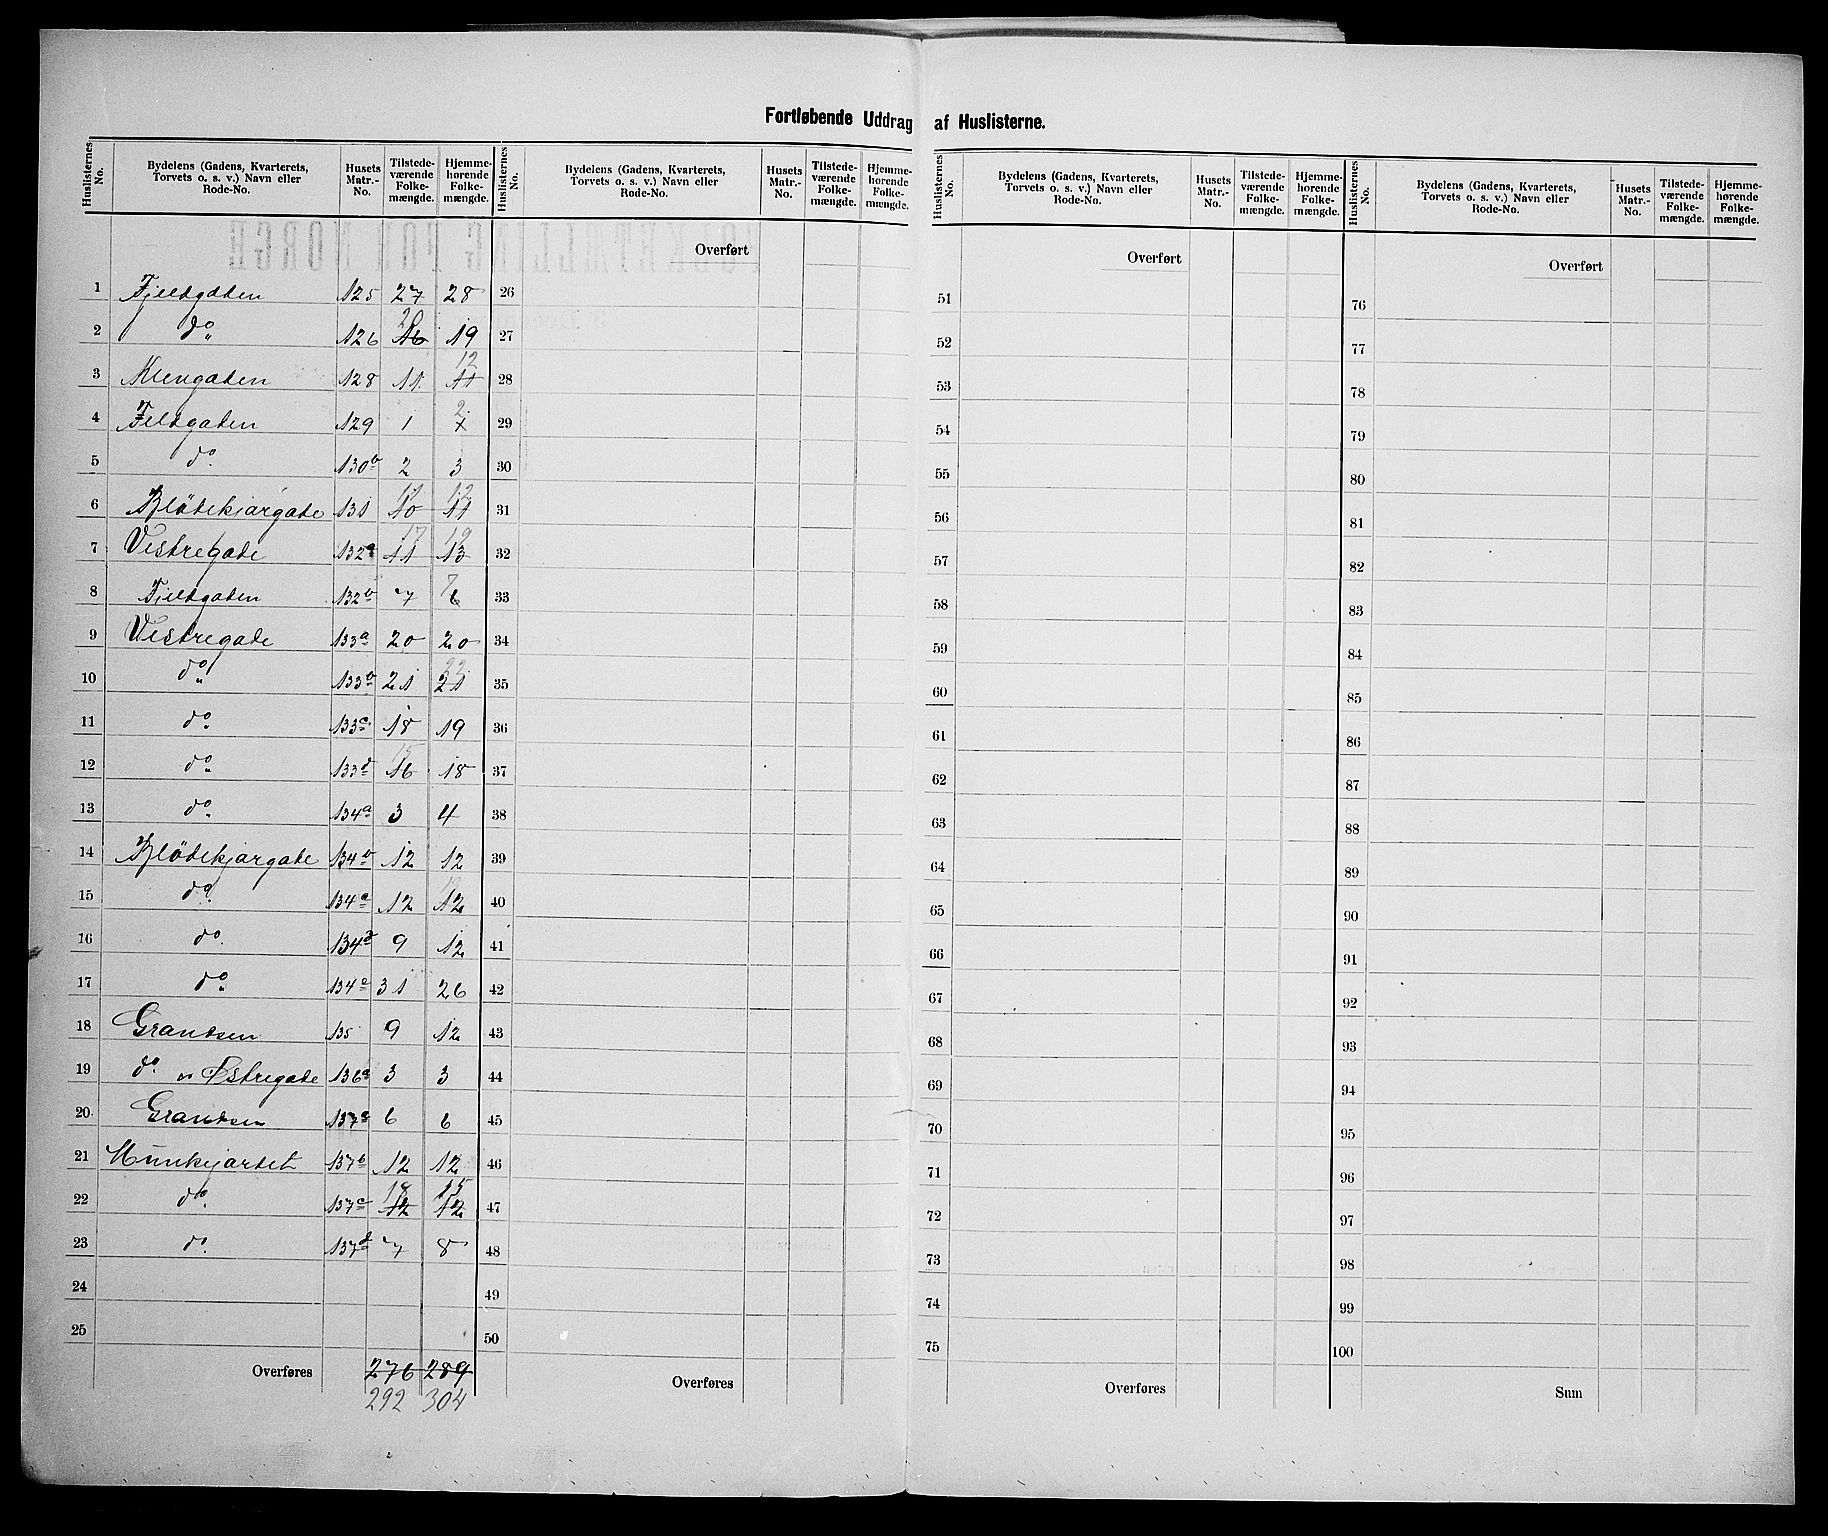 Fortløbende Uddrag af Huslisterne.
Huslisternes No. | Bydelens (Gadens, Kvarterets, Torvets o. s. v.) Navn eller Rode-No. | Husets Matr.-No. | Tilstedeværende Folkemængde. | Hjemmehørende Folkemængde.
Huslisternes No. | Bydelens (Gadens, Kvarterets, Torvets o. s. v.) Navn eller Rode-No. | Husets Matr.-No. | Tilstedeværende Folkemængde. | Hjemmehørende Folkemængde.
Huslisternes No. | Bydelens (Gadens, Kvarterets, Torvets o. s. v.) Navn eller Rode-No. | Husets Matr.-No. | Tilstedeværende Folkemængde. | Hjemmehørende Folkemængde.
Huslisternes No. | Bydelens (Gadens, Kvarterets, Torvets o. s. v.) Navn eller Rode-No. | Husets Matr.-No. | Tilstedeværende Folkemængde. | Hjemmehørende Folkemængde.
Overført Overført Overført
1 Fjeldgaden 125 27 28 26 51 76
2 do 126 16 20 19 27 52 77
3 128 11 11 12 28 53 78
4 Feldgaden 129 1 2 29 54 79
5 do 130b 2 3 30 55 80
6 Blødekjargade 131 10 11 12 31 56 81
7 Vestregade 132a 11 17 13 19 32 57 82
8 Fjeldgaden 132b 7 6 7 33 58 83
9 Vestregade 133a 20 20 34 59 84
10 do 133b 21 21 22 35 60 85
11 do 133c 18 19 36 61 86
12 do 133d 16 15 18 37 62 87
13 do 134a 3 4 38 63 88
14 Blødekjargade 134b 12 12 39 64 89
15 do 134c 12 12 40 65 90
16 do 134d 9 12 41 66 91
17 do 134e 31 26 42 67 92
18 Grandsen 135 9 12 43 68 93
19 do Østregade 136a 3 3 44 69 94
20 Grandsen 137a 6 6 45 70 95
21 Munkejordet 137b 12 12 46 71 96
22 do 137c 12 12 15 47 72 97
23 do 137d 7 8 48 73 98
24 49 74 99
25 50 75 100
Overføres 276 289 Overføres Overføres Sum
292 304